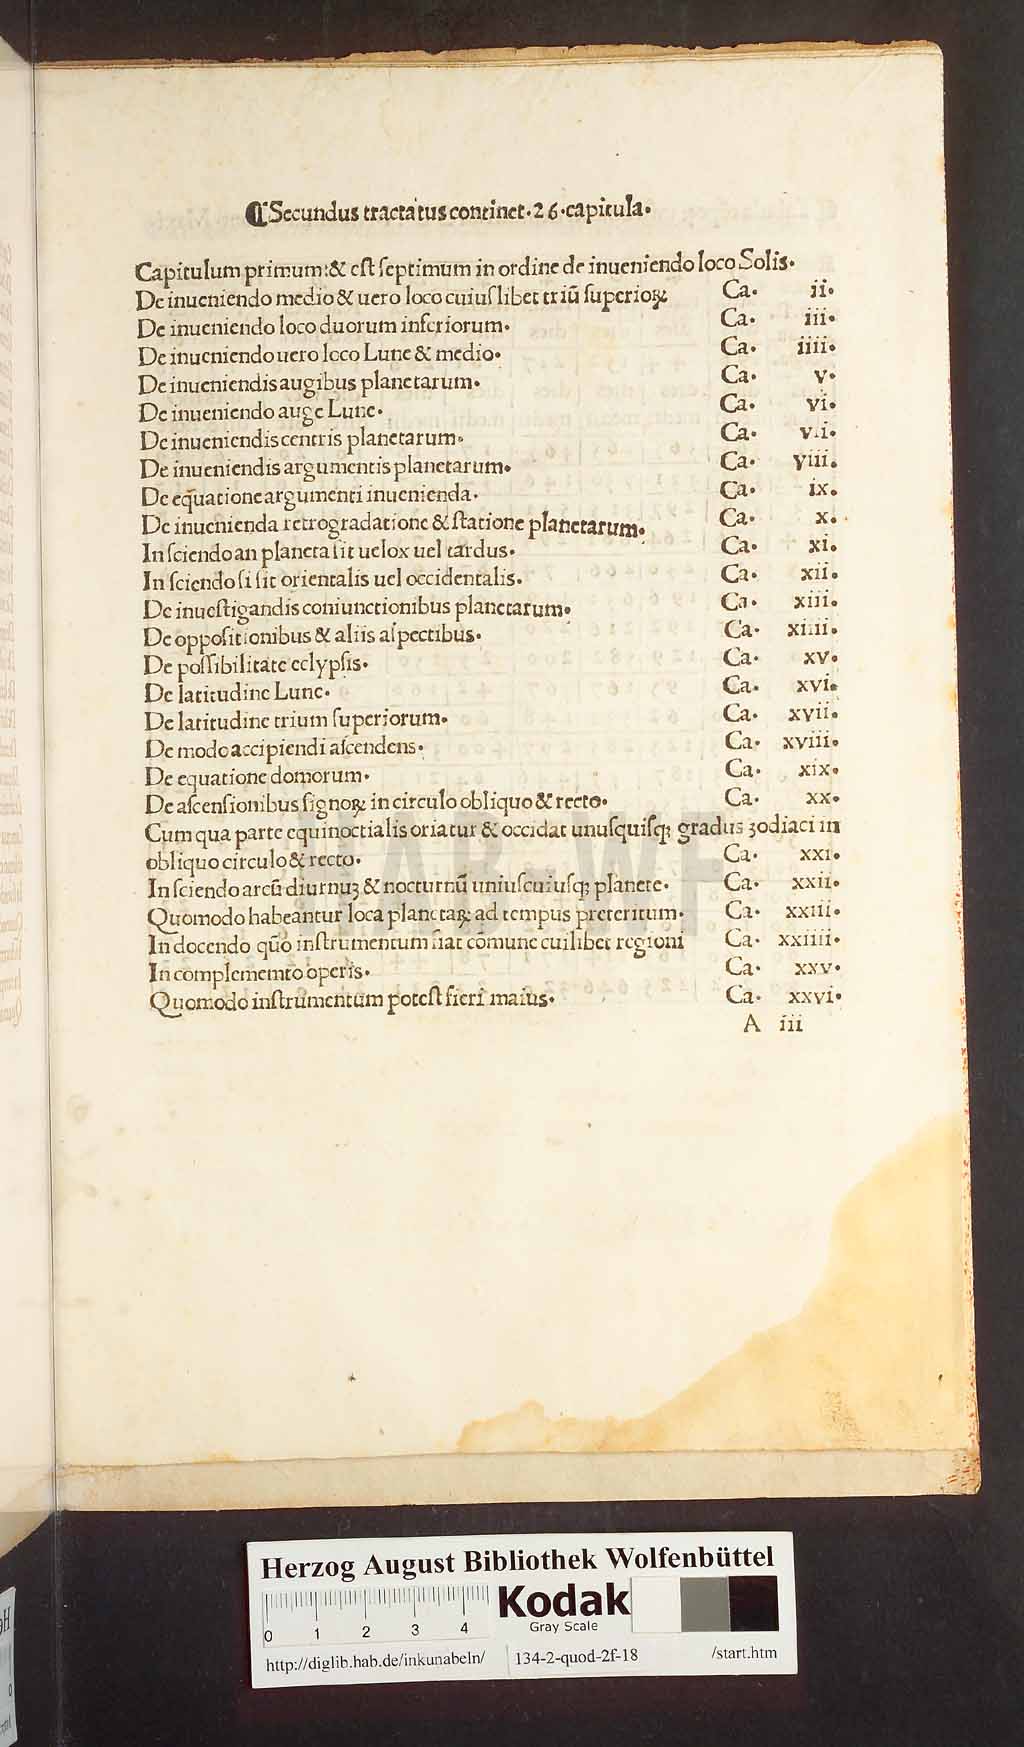 ¶ Secundus tractatus continet·26·capitula·
Capitulum primum:& eſt ſeptimum in ordine de inueniendo loco Solis·
De inueniendo medio & uero loco cuiuſlibet triū ſuperioꝝ Ca· ii·
De inueniendo loco duorum inferiorum· Ca· iii·
De inueniendo uero loco Lune & medio· Ca· iiii·
De inueniendis augibus planetarum· Ca· v·
De inueniendo auge Lune· Ca· vi·
De inueniendis centris planetarum· Ca· vii·
De inueniendis argumentis planetarum· Ca· viii·
De eq̄uatione argumenti inuenienda· Ca· ix·
De inuenienda retrogradatione & ſtatione planetarum· Ca· x·
In ſciendo an planeta ſit uelox uel tardus· Ca· xi·
In ſciendo ſi ſit orientalis uel occidentalis· Ca· xii·
De inueſtigandis coniunctionibus planetarum· Ca· xiii·
De oppoſitionibus & aliis aſpectibus· Ca· xiiii·
De poſſibilitate eclypſis· Ca· xv·
De latitudine Lune· Ca· xvi·
De latitudine trium ſuperiorum· Ca· xvii·
De modo accipiendi aſcendens· Ca· xviii·
De equatione domorum· Ca· xix·
De aſcenſionibus ſignoꝝ in circulo obliquo & recto· Ca· xx·
Cum qua parte equinoctialis oriatur & occidat unuſquiſqꝫ gradus ʒodiaci in
obliquo circulo & recto· Ca· xxi·
In ſciendo arcū diurnuꝫ & nocturnū uniuſcuiuſqꝫ planete· Ca· xxii·
Quomodo habeantur loca planetaꝝ ad tempus preteritum· Ca· xxiii·
In docendo qūo inſtrumentum fiat cōmune cuilibet regioni Ca· xxiiii·
In complememto operis· Ca· xxv·
Quomodo inſtrumentum poteſt fieri maius· Ca· xxvi·
A iii
HAB-WF
Herzog August Bibliothek Wolfenbüttel
0 1 2 3 4
Kodak
Gray Scale
http://diglib.hab.de/inkunabeln/ 134-2-quod-2f-18 /start.htm